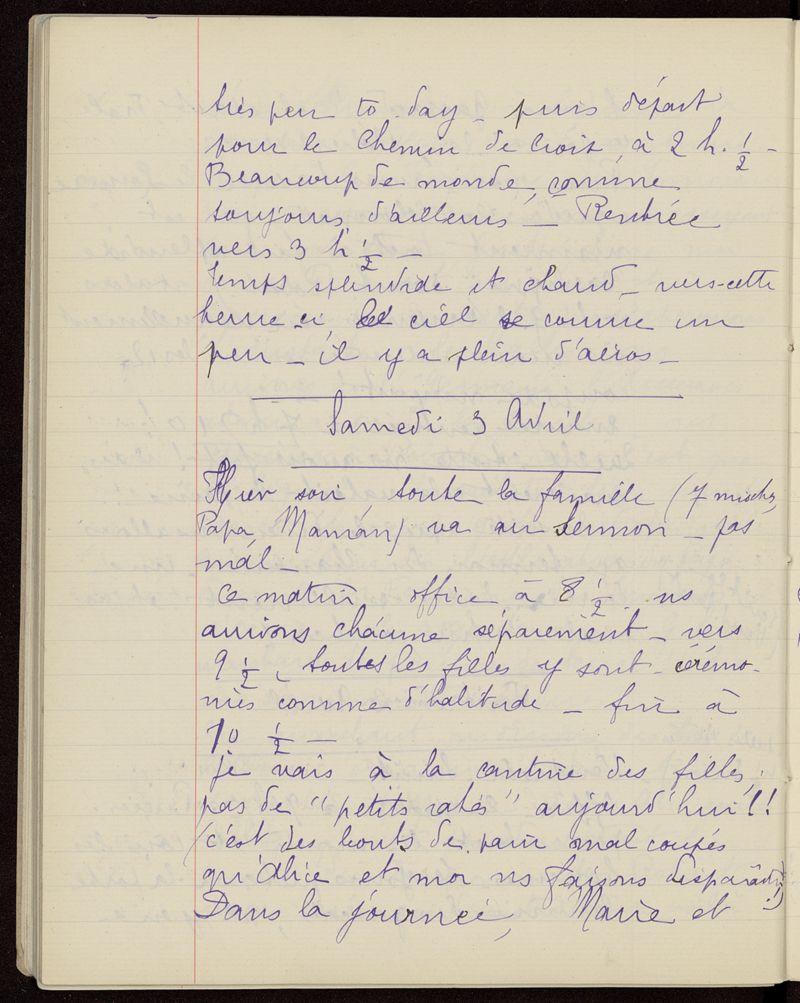 très peu to day – puis départ
pour le Chemin de Croix, à 2 h. ½ –
Beaucoup de monde, comme
toujours d'ailleurs – Rentrée
vers 3 h ½ –
temps splendide et chaud – vers cette
heure-ci, le ciel se comme un
peu – il y a plein d'aéros –
Samedi 3 Avril
Hier soir toute la famille (7
Papa, Maman) va au sermon – pas
mal –
Ce matin office à 8 ½. ns
arrivons chacune séparément – vers
9 ½, toutes les filles y sont – cérémo-
nies comme d'habitude – fini à
10 ½ –
je vais à la cantine des filles,
pas de "petits ratés" aujourd'hui !!
(c'est des bouts de pain mal coupés
qu'Alice et moi ns faisons disparaître !)
Dans la journée, Marie et